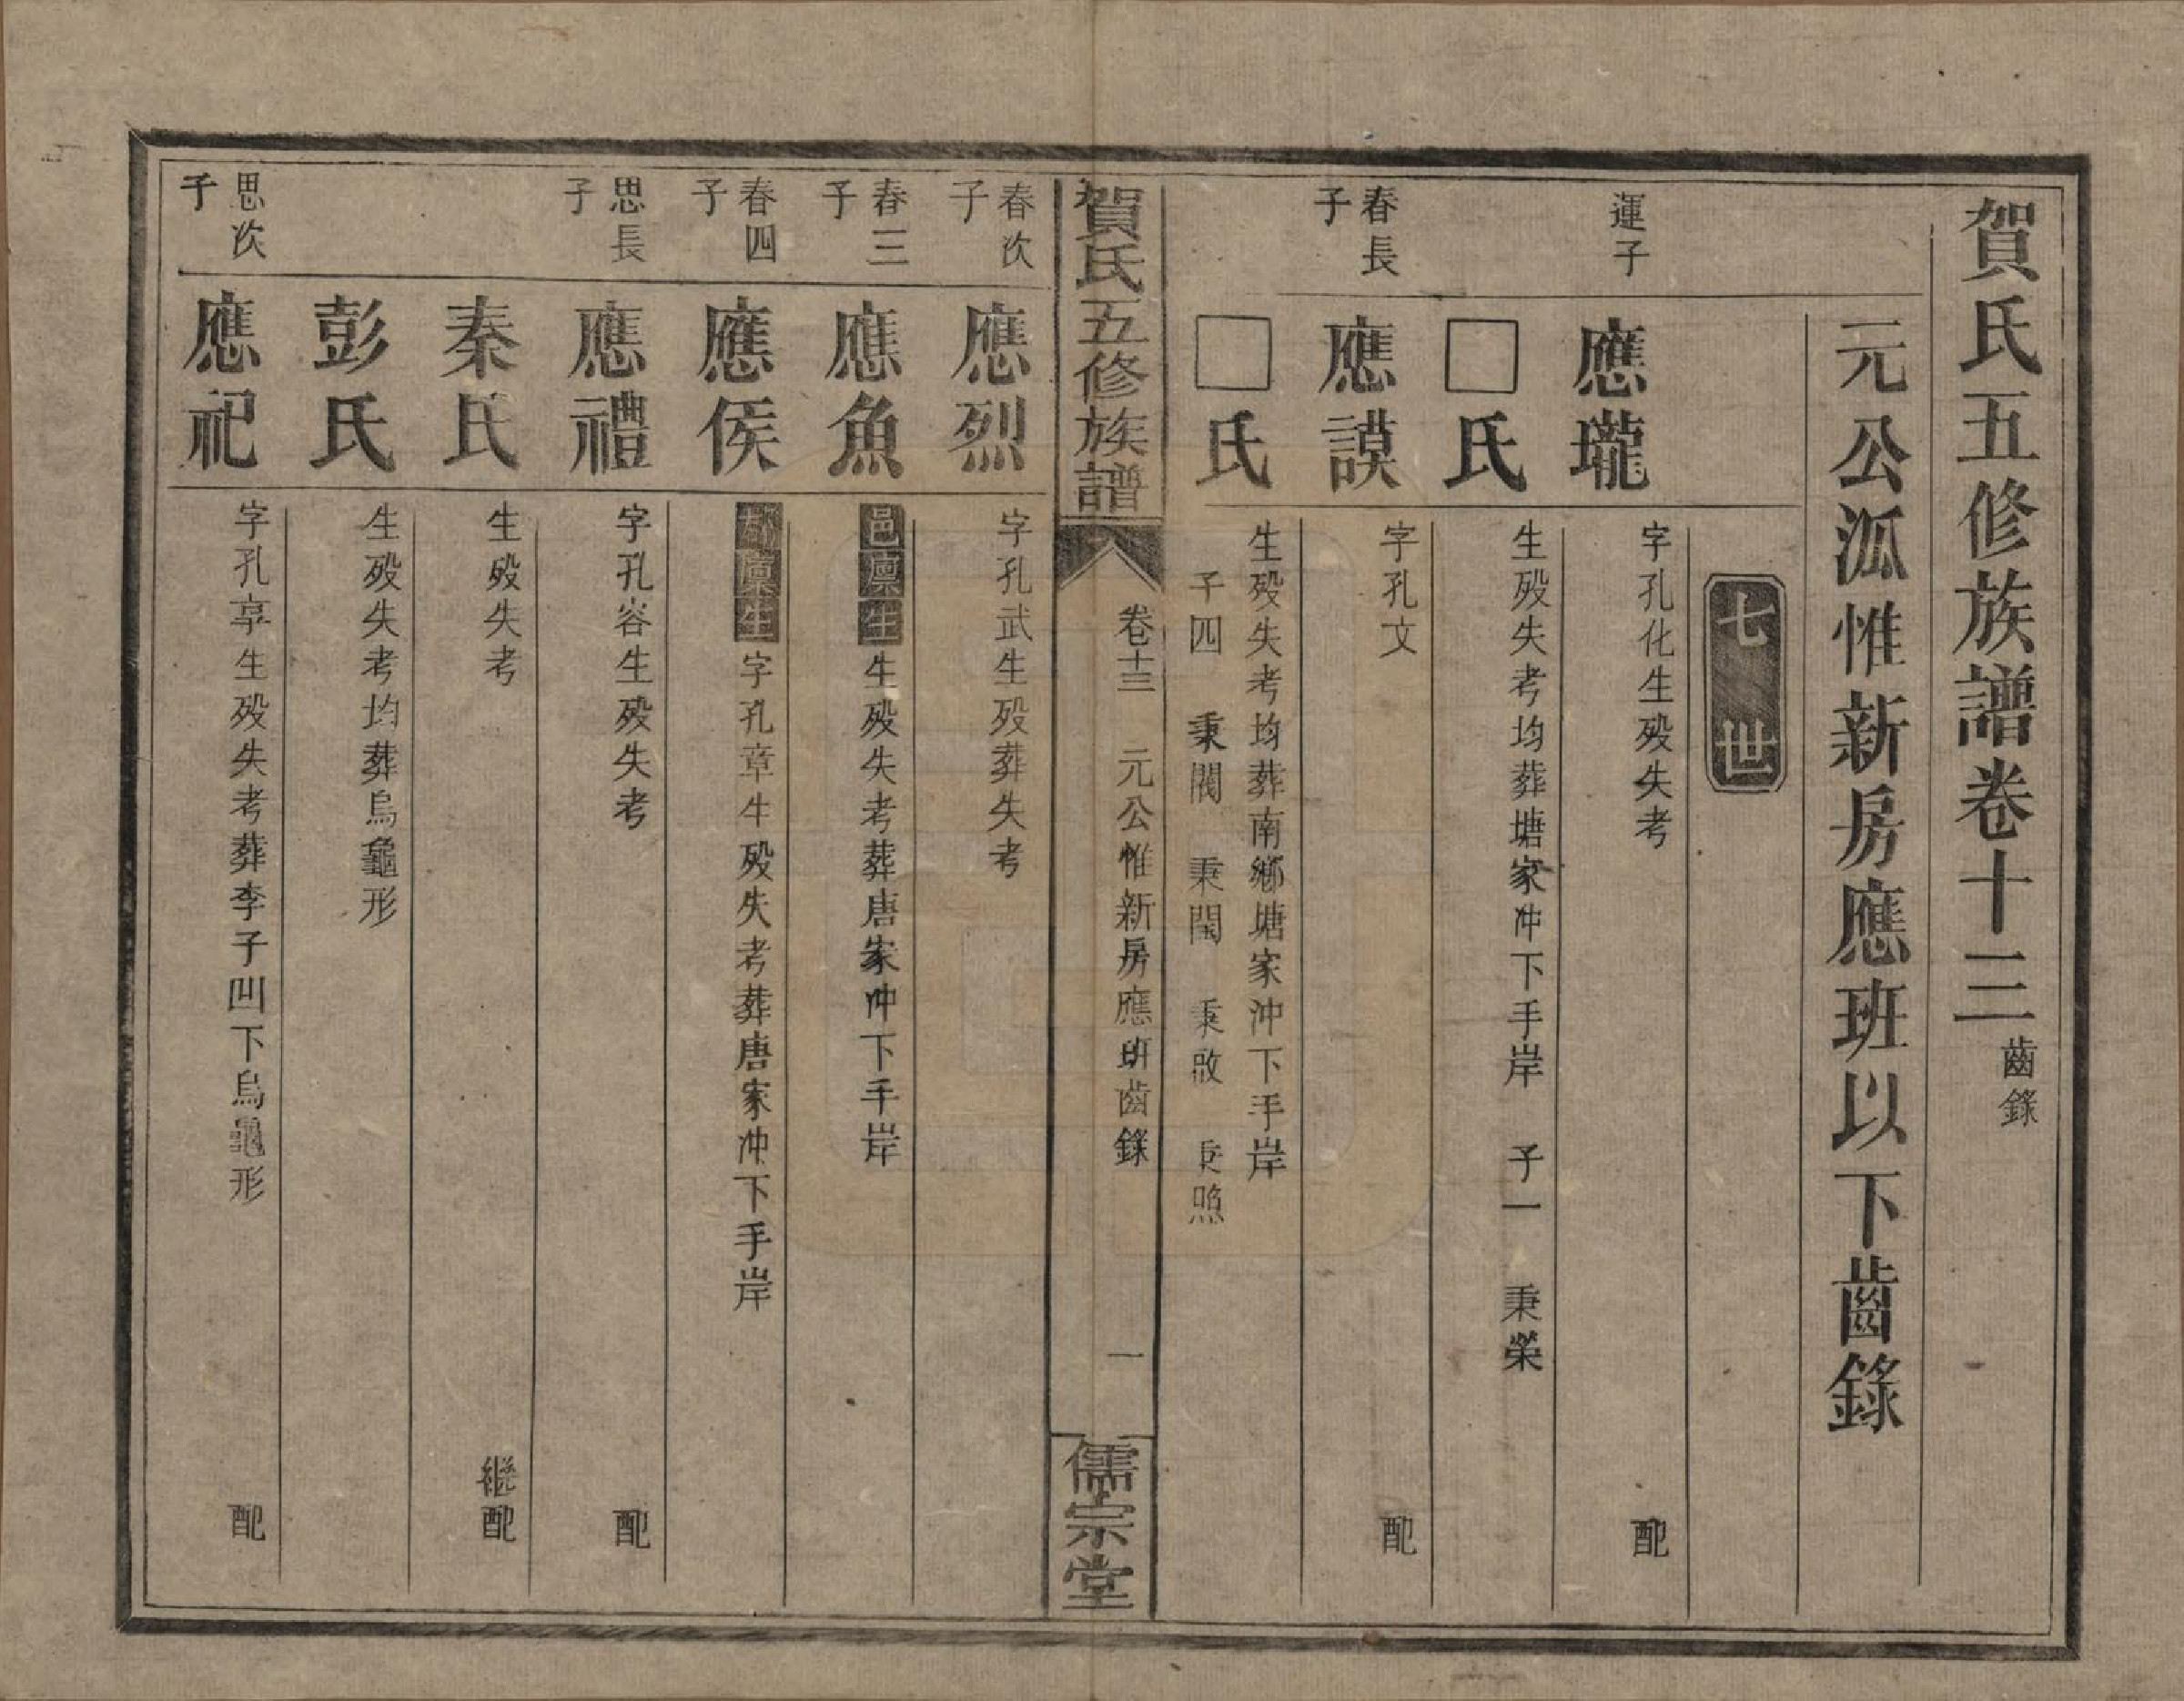 賀氏五修族譜卷十三 齒錄
元公派惟新房應班以下齒錄
七世
運子 應瓏 字孔化生殁失考 配
□氏 生殁失考均葬塘家冲下手岸 子一 秉榮
春長子 應謨 字孔文 配
□氏 生殁失考均葬南鄉塘家冲下手岸
子四 秉閣 秉閨 秉政 秉照
賀氏五修族譜 卷十三 元公惟新房應班齒錄 一 儒宗堂
春次子 應烈 字孔武生殁葬失考
春三子 應魚 邑廪生生殁失考葬唐家冲下手岸
春四子 應侯 郡廪生字孔章生殁失考葬唐家冲下手岸
思長子 應禮 字孔容生殁失考 配
秦氏 生殁失考 繼配
彭氏 生殁失考均葬烏龜形
思次子 應祀 字孔享生殁失考葬李子凹下烏龜形 配